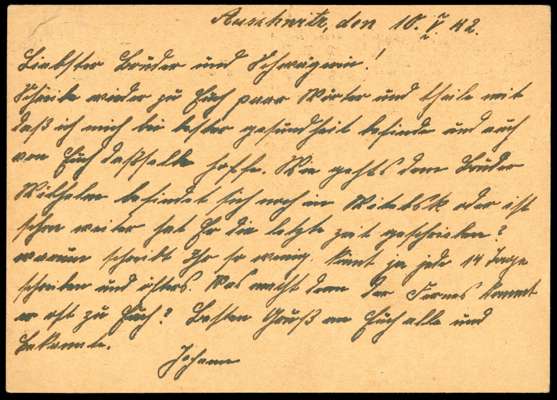 Auschwitz, den 10. V. 42.
Liebster Bruder und Schwägerin!
Schreibe wieder zu Euch paar Wörter und theile mit
daß ich mich bei bester gesundheit befinde und auch
von Euch dasselbe hoffe. Wie gehts dem Bruder
Wilhelm befindet sich noch in Witebsk oder ist
schon weiter hat Er die letzte zeit geschrieben?
warum schreibt Ihr so wenig. Könnt ja jede 14 Tage
schreiben und öfters. Was macht denn der kommt
er oft zu Euch? Besten Gruß an Euch alle und
Bekannte.
Johann